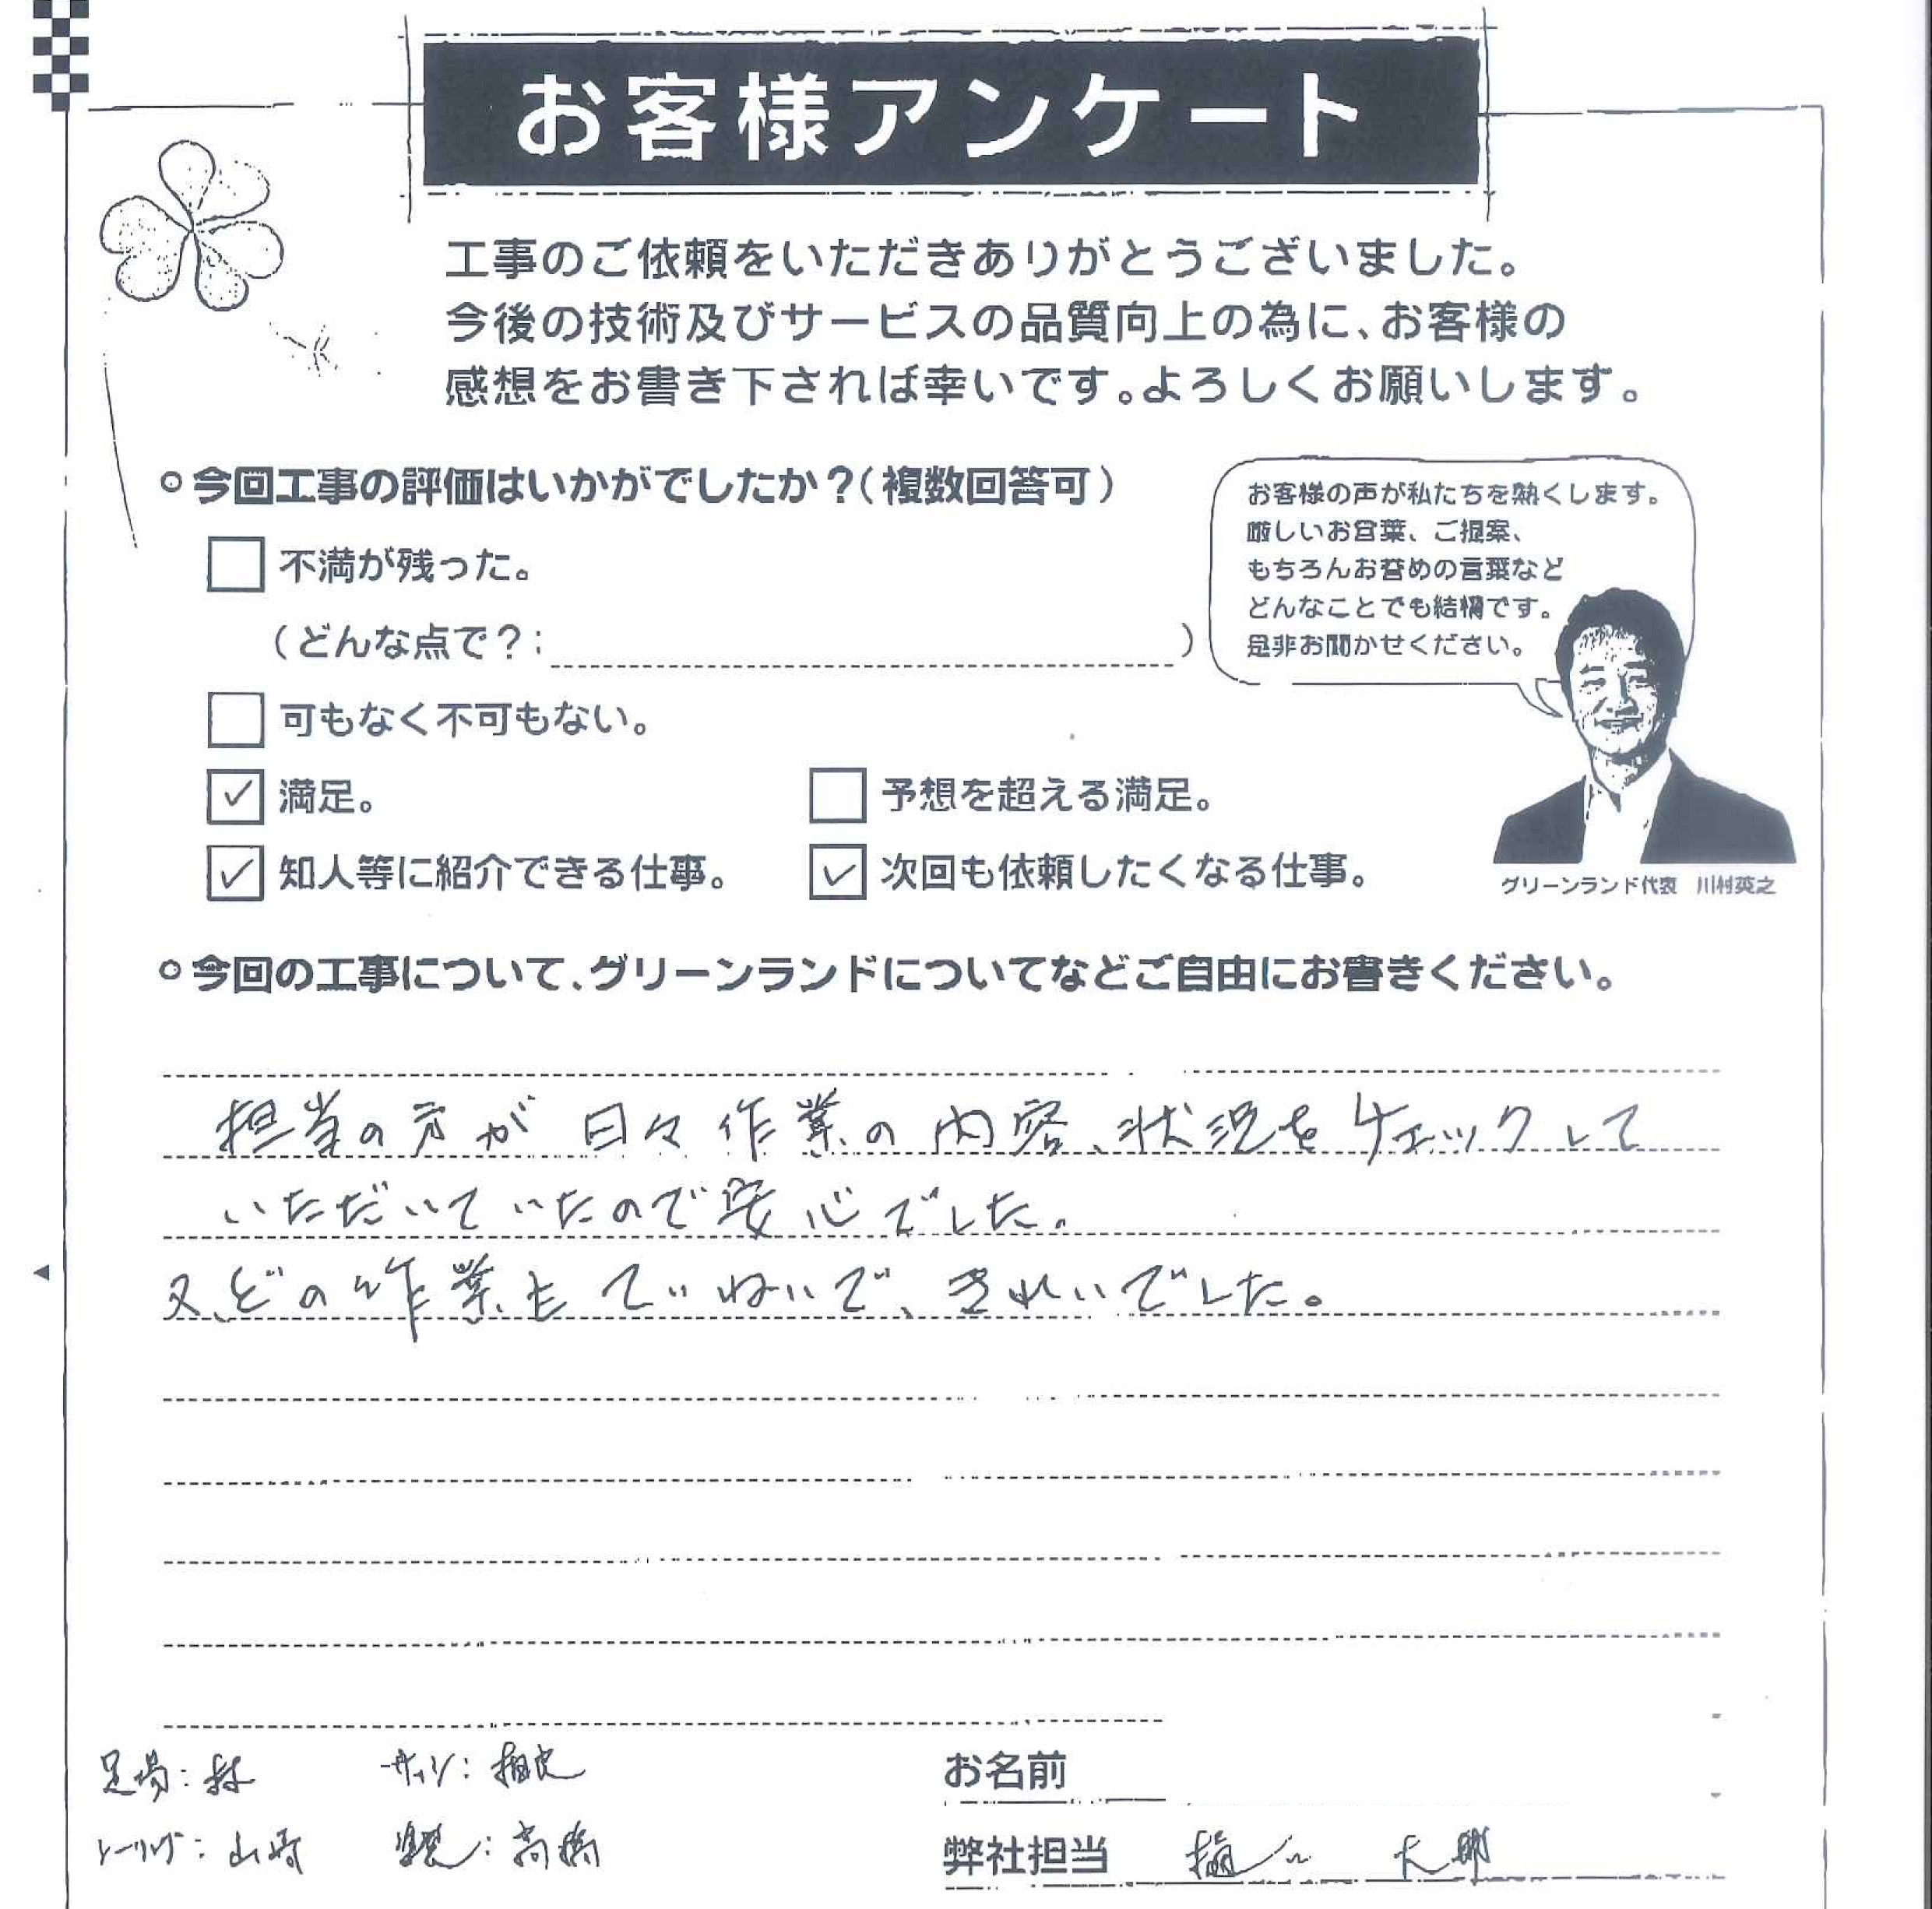 お客様アンケート
工事のご依頼をいただきありがとうございました。
今後の技術及びサービスの品質向上の為に、お客様の
感想をお書き下されば幸いです。よろしくお願いします。
今回工事の評価はいかがでしたか?(複数回答可)
不満が残った。
(どんな点で?: )
可もなく不可もない。
満足。 予想を超える満足。
知人等に紹介できる仕事。 次回も依頼したくなる仕事。
お客様の声が私たちを熱くします。
厳しいお言葉、ご提案、
もちろんお誉めの言葉など
どんなことでも結構です。
是非お聞かせください。
グリーンランド代表 川村英之
今回の工事について、グリーンランドについてなどご自由にお書きください。
担当の方が日々作業の内容、状況をチェックして
いただいていたので安心でした。
又、どの作業もていねいで、きれいでした。
足場:林
山崎 高橋
お名前
弊社担当